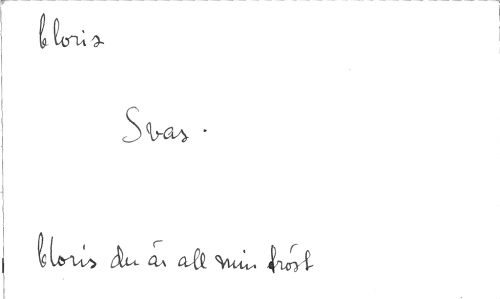 Cloris
Svar.
Cloris du är all min tröst